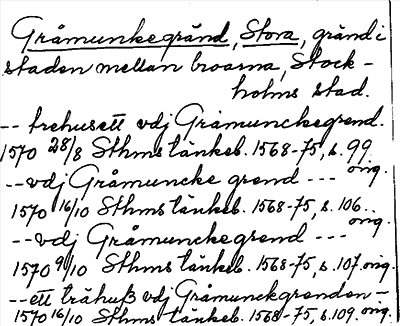 Gråmunkegränd, Stora, gränd i
staden mellan broarna, Stock-
holms stad.
-- trehusett vdj Gråmunckegrend.
1570 28/8 Sthms tänkeb. 1568-75, s. 99.
orig.
-- vdj Gråmuncke grend ---
1570 16/10 Sthms tänkeb. 1568-75, s. 106.
orig.
-- vdj Gråmunckegrend ---
1570 9/10 Sthms tänkeb. 1568-75, s. 107. orig.
-- ett trähuß vdj Gråmunckgrenden --
1570 16/10 Sthms tänkeb. 1568-75, s. 109. orig.